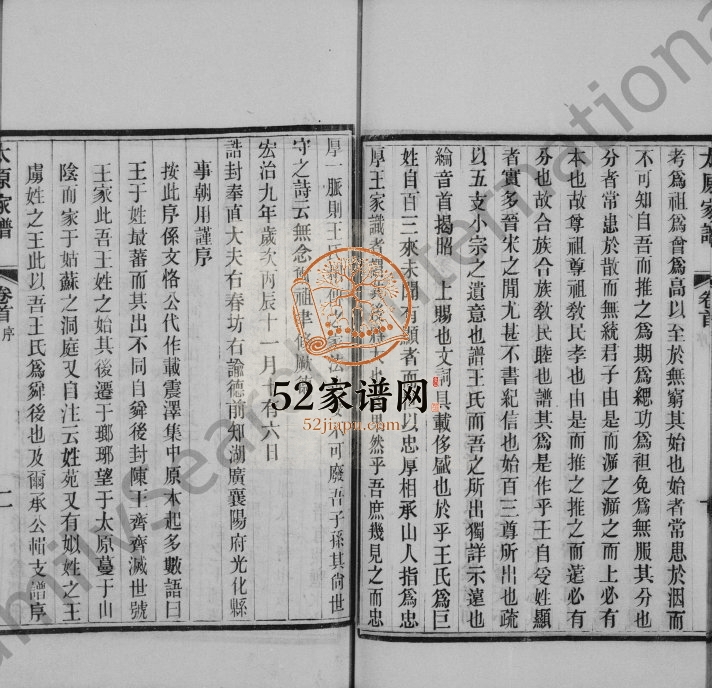 太原家譜
卷首
考爲祖爲曾爲高以至於無窮其始也始者常患於泯而
不可知自吾而推之爲期爲緦功爲祖免爲無服其分也
分者常患於散而無統君子由是而泝之泝之而上必有
本也故尊祖尊祖敎民孝也由是而推之推之而遠必有
分也故合族合族敎民睦也譜其爲是作乎王自受姓顯
者實多晉宋之閒尤甚不書紀信也始百三尊所出也疏
以五支小宗之遺意也譜王氏而吾之所出獨詳示遠也
綸音首揭昭 上賜也文詞具載侈盛也於乎王氏爲巨
姓自百三來未聞顯者而以忠厚相承山人指爲忠
厚王家識者然乎吾庶幾見之而忠
厚一脈則王氏不可廢吾子孫其尙世
守之詩云無念爾祖聿修厥
宏治九年歲次丙辰十一月有六日
誥封奉直大夫右春坊右諭德前知湖廣襄陽府光化縣
事朝用謹序
按此序係文恪公代作載震澤集中原本起多數語曰
王于姓最蕃而其出不同自舜後封陳王齊齊滅世號
王家此吾王姓之始其後遷于瑯琊望于太原蔓于山
陰而家于姑蘇之洞庭又自注云姓苑又有姒姓之王
虜姓之王此以吾王氏爲舜後也及爾承公輯支譜序
太原家譜
卷首
序
二
52家谱网
52jiapu.com
FamilySearch International